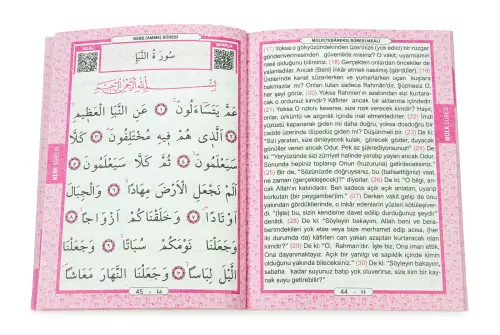 NEBE (AMME) SÛRESİ
MEAL
SÛRE
سُورَةُ النَّبَأِ
بِسْمِ اللّٰهِ الرَّحْمٰنِ الرَّحِيمِ
عَمَّ يَتَسَاءَلُونَ ۝ عَنِ النَّبَأِ الْعَظِيمِ
۝ اَلَّذِى هُمْ فِيهِ مُخْتَلِفُونَ ۝ كَلَّا
سَيَعْلَمُونَ ۝ ثُمَّ كَلَّا سَيَعْلَمُونَ ۝
اَلَمْ نَجْعَلِ الْاَرْضَ مِهَادًا ۝ وَالْجِبَالَ
اَوْتَادًا ۝ وَخَلَقْنَاكُمْ اَزْوَاجًا ۝
وَجَعَلْنَا نَوْمَكُمْ سُبَاتًا ۝ وَجَعَلْنَا
الَّيْلَ لِبَاسًا ۝ وَجَعَلْنَا النَّهَارَ مَعَاشًا
NEBE SÛRESİ
45 - ٤٥
MÜLK(TEBAREKE) SÛRESİ MEÂLİ
(17) Yoksa o gökyüzündekinden üzerinize (yok edici) bir rüzgar
göndermeyeceğinden güvenlikte misiniz? O vakit, uyarmanın
nasıl olduğunu bilirsiniz. (18) Gerçekten onlardan öncekiler de
yalanladılar. Ancak (Beni) inkâr etmek nasılmış (gördüler). (19)
Üstlerinde kanat süzerlerken ve yumarken uçan kuşlara
bakmazlar mı? Onları tutan sadece Rahmân'dır. Şüphesiz O,
her şeyi görür. (20) Yoksa Rahman'ın azabından sizi kurtara-
cak o ordunuz kimdir? Kâfirler ancak bir aldanma içindedir.
(21) Yoksa O rızkını keserse, size rızık verecek kimdir? Hayır,
onlar, ürküntü ve azgınlık içinde inat etmektedirler. (22) İmdi
yüzüstü kapanarak giden mi daha doğru, yoksa dosdoğru bir
cadde üzerinde düpedüz giden mi? Düşünmeli bir. (23) De ki:
"Sizi yaratan, size dinleyecek kulak, görecek gözler, duyacak
gönüller veren ancak Odur. Pek az şükrediyorsunuz!" (24) De
ki: "Yeryüzünde sizi zürriyet halinde yaratıp yayan ancak Odur.
Sonunda hepiniz toplanıp Onun (huzuruna) getirileceksiniz."
(25) Bir de, "Sözünüzde doğruysanız, bu (bahsettiğiniz) vait,
ne zaman (gerçekleşecek)?" diyorlar. (26) De ki: "O bilgi, an-
cak Allah'ın katındadır. Ben sadece açık açık anlatan, uyarıp
korkutan (bir peygamber)im." (27) Derken vakit gelip de onu
yakından gördüklerinde, o inkâr edenlerin yüzleri kötüleşiver-
di. "(İşte) bu, sizin kendisini davet edilip durduğunuz şeydir"
denildi. (28) De ki: "Söyleyin bakayım, Allah beni ve bera-
berimdekileri yok etse veya bize merhamet edip acısa, (her
iki durumda da) kâfirleri can yakan azaptan kurtaracak olan
kimdir?" (29) De ki: "O, Rahman'dır. İşte biz, Ona iman ettik,
Ona dayanmaktayız. Açık bir yanılgı ve sapıklık içinde kimin
olduğunu yakında bileceksiniz." (30) De ki: "Söyleyin bakayım,
sabaha kadar suyunuz batıp yok oluverirse, size kim bir kay-
nak suyu getirebilir?"
MÜLK SÛRESİ
44 - ٤٤